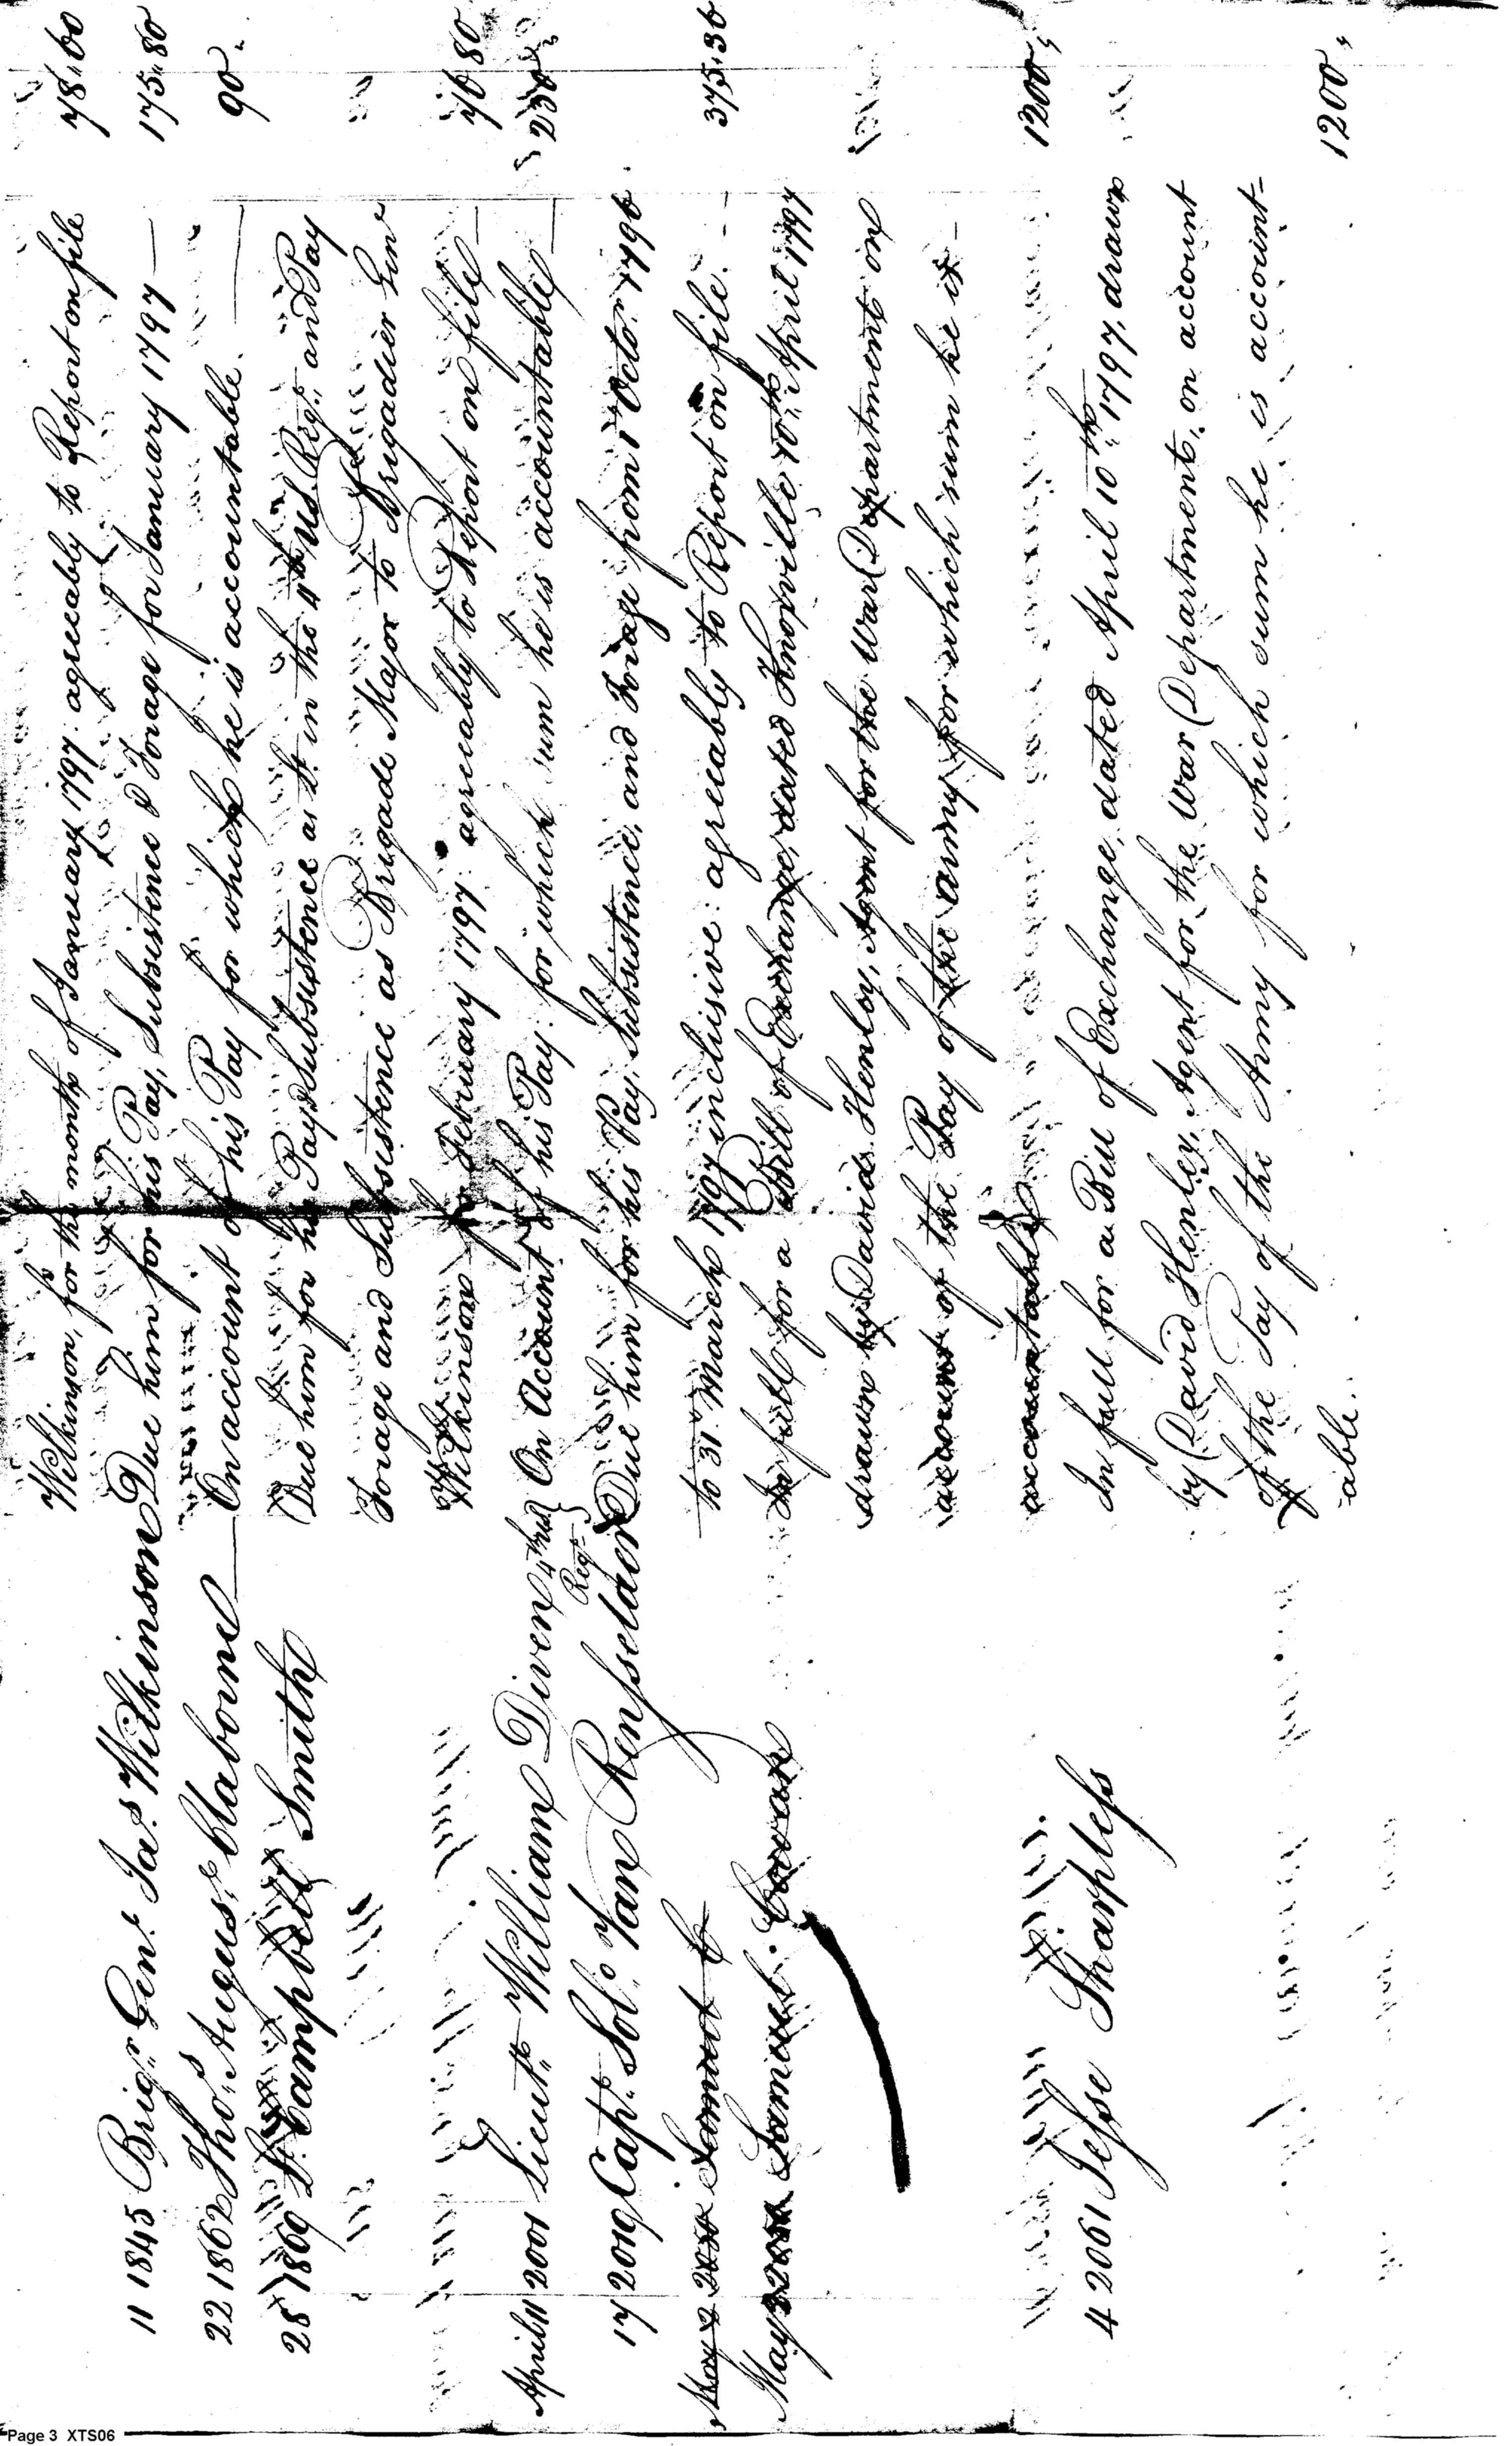 Wilkinson, for the month of January 1797. agreeably to Report on file 78.60
11 1845 Brigr. Genl. Jas. Wilkinson Due him for his Pay, Subsistence & Forage for January 1797 175.80
22 1862 Thos. Augus. Claborne On account of his Pay for which he is accountable. 90.
28 1869 Lt. Campbell Smith Due him for his Pay & Subsistence as Lt. in the 4th US Regt. and Pay
Forage and Subsistence as Brigade Major to Brigadier Genl.
Wilkinson for February 1797. agreeably to Report on file 76 80
April 11 2001 Lieut. William Diven 4th US Regt. On Account of his Pay. for which sum he is accountable 230
17 2019 Capt. Sol. Van Rensselaer Due him for his Pay, Subsistence, and Forage from 1 Octo. 1796
to 31 March 1797 inclusive: agreeably to Report on file. 375.36
May 2 Samuel C
May Samuel Cowan In full for a Bill of Exchange, dated Knoxville 10th April 1797
drawn by David Henley, Agent for the War Department on
account of the Pay of the army for which sum he is
accountable 1200,
4 2061 Jesse Sharpless In full for a Bill of Exchange, dated April 10th 1797, drawn
by David Henley, Agent for the War Department, on account
of the Pay of the Army for which sum he is account-
able. 1200,
Page 3 XTS06